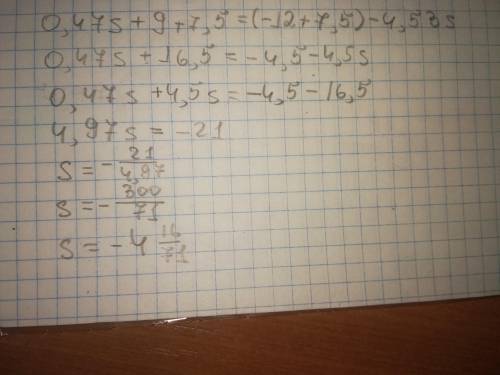 0,47s + 9 + 7,5 = (-12 + 7,5) - 4,53s
0,47s + 16,5 = -4,5 - 4,5s
0,47s + 4,5s = -4,5 - 16,5
4,97s = -21
s = - 21/4,97
s = - 300/71
s = - 4 16/71